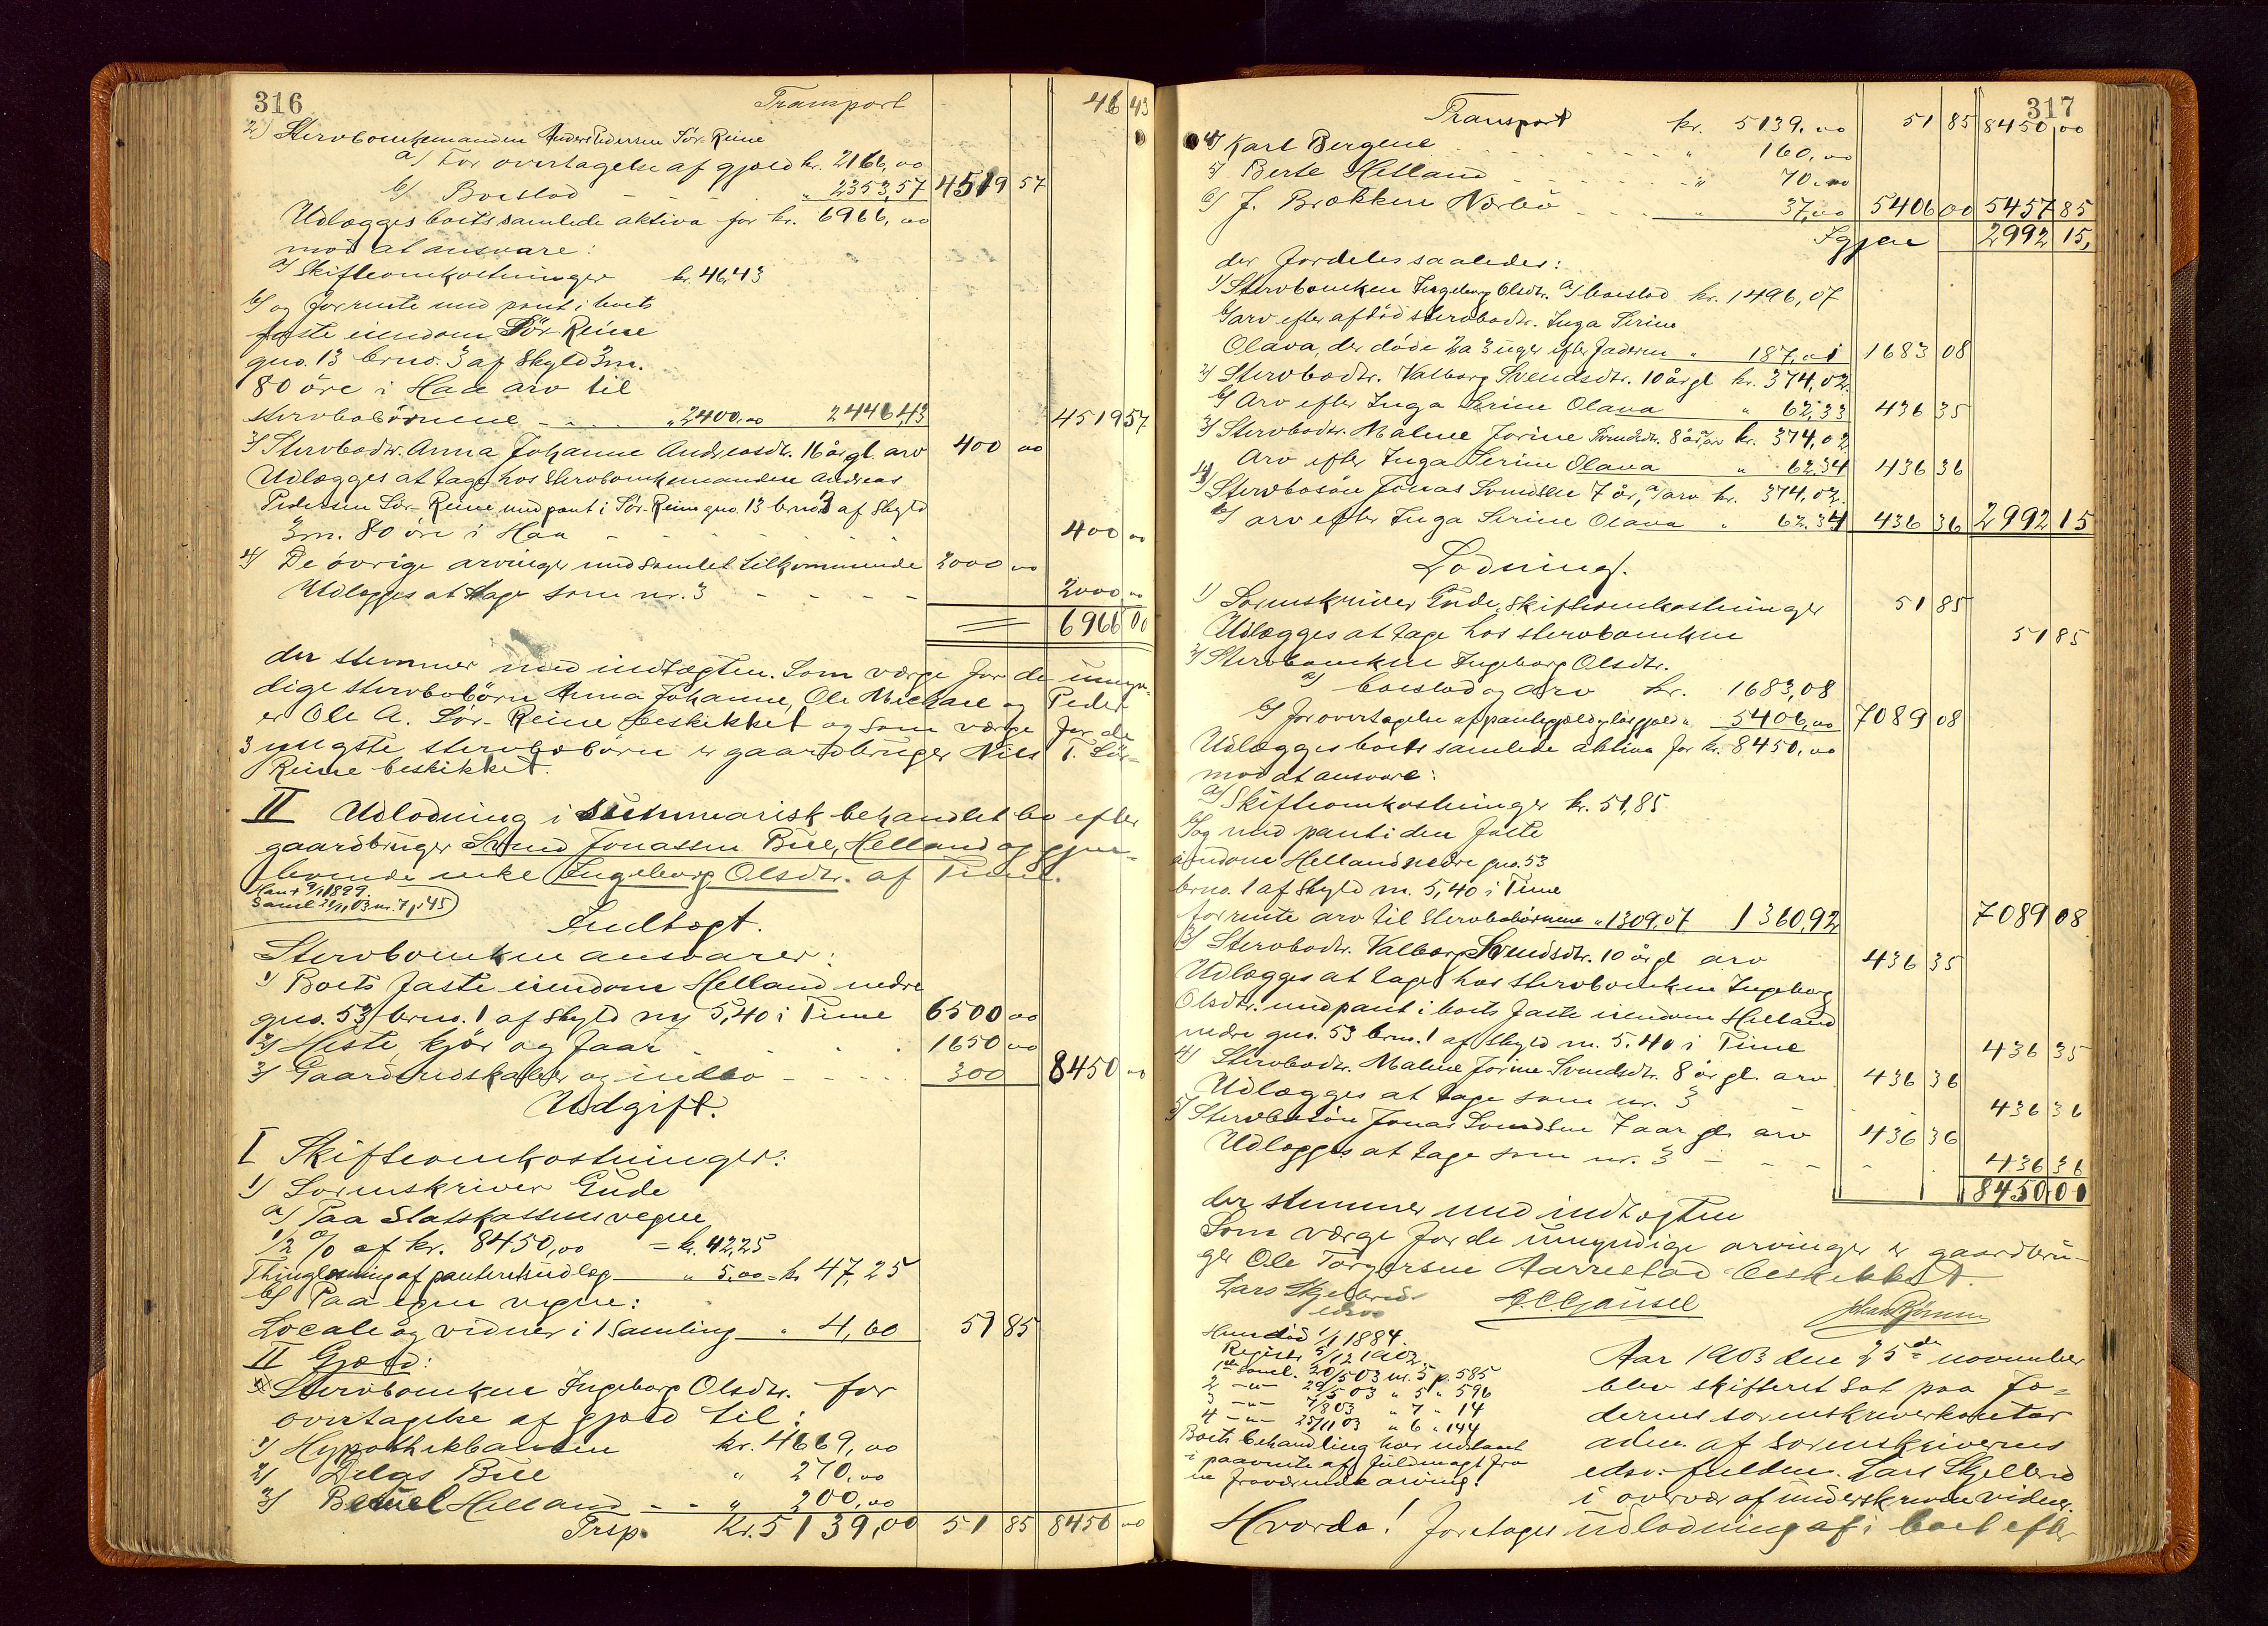 316 Transport 46 43
2) Stervboenkemanden Anders Pedersen Sör-Reime
a) For overtagelse af gjæld kr. 2166,00
b) Boeslod - - - " 2353,57 4519 57
Udlægges boets samlede aktiva for kr. 6966,00
mod at ansvare:
a) Skifteomkostninger kr. 46,43
b) og forrente med pant i boets
faste eiendom Sör-Reime
gno. 13 brno. 3 af Skyld 3 m.
80 öre i Haa arv til
stervbobörnene - - - " 2400,00 2446,43 4519 57
3) Stervbodtr. Anna Johanne Andreasdr. 16 år gl. arv 400 00
Udlægges at tage hos Stervboenkemanden Andreas
Pedersen Sör-Reime med pant i Sör-Reime gno. 13 brno 3 af Skyld
3 m. 80 öre i Haa - - - 400 00
4) De övrige arvinger med samlet tilkommende 2000 00
Udlægges at tage som nr. 3 - - - - 2000 00
6966 00
der stemmer med indtægten. Som værge for de umyn-
dige stervbobörn Anna Johanne, Ole Michael og Peder
er Ole A. Sör-Reime beskikket og som værge for de
3 yngste stervbobörn er gaardbruger Nils T. Sör-
Reime beskikket.
II Udlodning i summarisk behandlet bo efter
gaardbruger Svend Jonassen Bue, Helland og gjen-
levende enke Ingeborg Olsdtr. af Time.
Man † 9/1 1899.
Saml 21/1, 03 nr. 7 p. 45
Indtægt.
Stervboenken ansvarer:
1) Boets faste eiendom Helland nedre
gno. 53 brno. 1 af Skyld my 5,40 i Time 6500 00
2) Heste, kjör og faar - - - 1650 00
3) Gaardsredskaber og indbo - - - 300 8450 00
Udgift.
I Skifteomkostninger:
1) Sorenskriver Gude
a) Paa Statskassens vegne
1/2 % af kr. 8450,00 = kr. 42,25
Thinglæsning af panteretsudlæg " 5,00 = kr 47,25
b) Paa egne vegne:
Locale og vidner i 1 Samling " 4,60 51 85
II Gjæld:
Stervboenken Ingeborg Olsdtr. for
overtagelse af gjæld til:
1) Hypothekbanken kr. 4669,00
2) Delas Bue " 270,00
3) Betuel Helland - - " 200,00
Trsp. Kr. 5139,00 51 85 8450 00
317
Transport kr. 5139,00 51 85 8450,00
4) Karl Bergene - - - " 160,00
5) Berte Helland - - - " 70,00
6) J. Brækken Nærbö - - - " 37,00 5406 00 5457 85
Igjen 2992 15,
der fordeles saaledes:
1) Stervboenken Ingeborg Olsdtr. a) boeslod kr. 1496,07
b) arv efter afdöd stervbodtr. Inga Serine
Olava, der döde 2 a 3 uger efter faderen " 187,01 1683 08
2) Stervbodtr. Valborg Svendsdtr. 10 år gl kr. 374,02
b) Arv efter Inga Serine Olava " 62,33 436 35
3) Stervbodtr. Malene Jorine Svendsdr. 8 år a) arv kr. 374,02
Arv efter Inga Serine Olava " 62.34 436 36
4) Stervbosön Jonas Svendsen 7 år, a) arv kr. 374,02
b) arv efter Inga Serine Olava " 62.34 436 36 2992 15
Lodning.
1) Sorenskriver Gude, Skifteomkostninger 51 85
Udlægges at tage hos stervboenken 51 85
2) Stervboenken Ingeborg Olsdtr.
a) boeslod og arv kr. 1683,08
b) for overtagelse af pantegjæld og lös gjæld " 5406,00 7089 08
Udlægges boets samlede aktiva for kr. 8450,00
mod at ansvare:
a) Skifteomkostninger kr. 51,85
b) og med pant i den faste
eiendom Helland nedre gno. 53
brno. 1 af Skyld m. 5,40 i Time
forrente arv til Stervbobörnene " 1309,07 1360,92 7089 08
3) Stervbodtr. Valborg Svendsdtr. 10 år gl arv 436 35
Udlægges at tage hos stervboenken Ingeborg
Olsdtr. med pant i boets faste eiendom Helland
nedre gno. 53 brno. 1 af Skyld m. 5,40 i Time 436 35
4) Stervbodtr. Malene Jorine Svendsdr. 8 år gl. arv 436 36
Udlægges at tage som nr. 3 436 36
5) Stervbosön Jonas Svendsen 7 aar gl. arv 436 36
Udlægges at tage som nr. 3 - - - 436 36
8450 00
der stemmer med indtægten
Som værge for de umyndige arvinger er gaardbru-
ger Ole Torgersen Aarrestad beskikket.
Lars Skjelbred
edsv.
Hun död 1/1 1884.
Registr. 2/12 1902.
1ste Saml. 20/5 03 nr. 5 p. 585
2 -"- 29/5 03 " 5 " 596
3 -"- 4/8 03 " 7 " 14
4 -"- 25/11 03 " 6 " 144
Boets behandling har udstaaet
i paavente af fuldmagt fra
en fraværende arving!
Aar 1903 den 25de november
blev skifteret sat paa Jæ-
derens sorenskriverkontor
adm. af Sorenskriverens
edsv. fuldm. Lars Skjelbred
i overvær af underskrevne vidner.
Hvorda! foretages udlodning af i boet efter